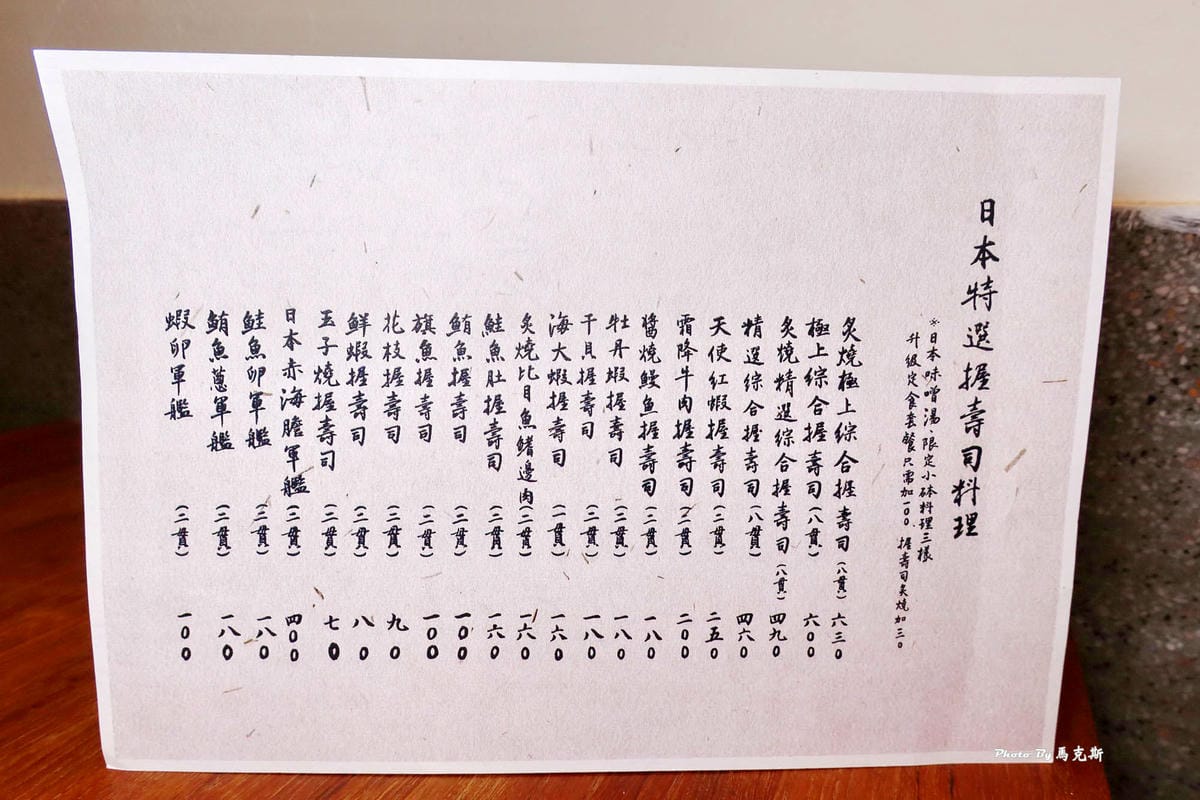 日本特選握壽司料理
※日本味噌湯、限定小砵料理三樣
升級定食套餐只需加一00、握壽司炙燒加三0
炙燒極上綜合握壽司(八貫) 六三0
極上綜合握壽司(八貫) 六00
炙燒精選綜合握壽司(八貫) 四九0
精選綜合握壽司(八貫) 四六0
天使紅蝦握壽司(二貫) 二五0
霜降牛肉握壽司(二貫) 二00
醬燒鰻魚握壽司(二貫) 一八0
牡丹蝦握壽司(二貫) 一八0
干貝握壽司(二貫) 一八0
海大蝦握壽司(一貫) 一六0
炙燒比目魚鰭邊肉(二貫) 一六0
鮭魚肚握壽司(二貫) 一六0
鮪魚握壽司(二貫) 一00
旗魚握壽司(二貫) 一00
花枝握壽司(二貫) 九0
鮮蝦握壽司(二貫) 八0
玉子燒握壽司(二貫) 七0
日本赤海膽軍艦(二貫) 四00
鮭魚卵軍艦(二貫) 一八0
鮪魚蔥軍艦(二貫) 一八0
蝦卵軍艦(二貫) 一00
Photo By 馬克斯